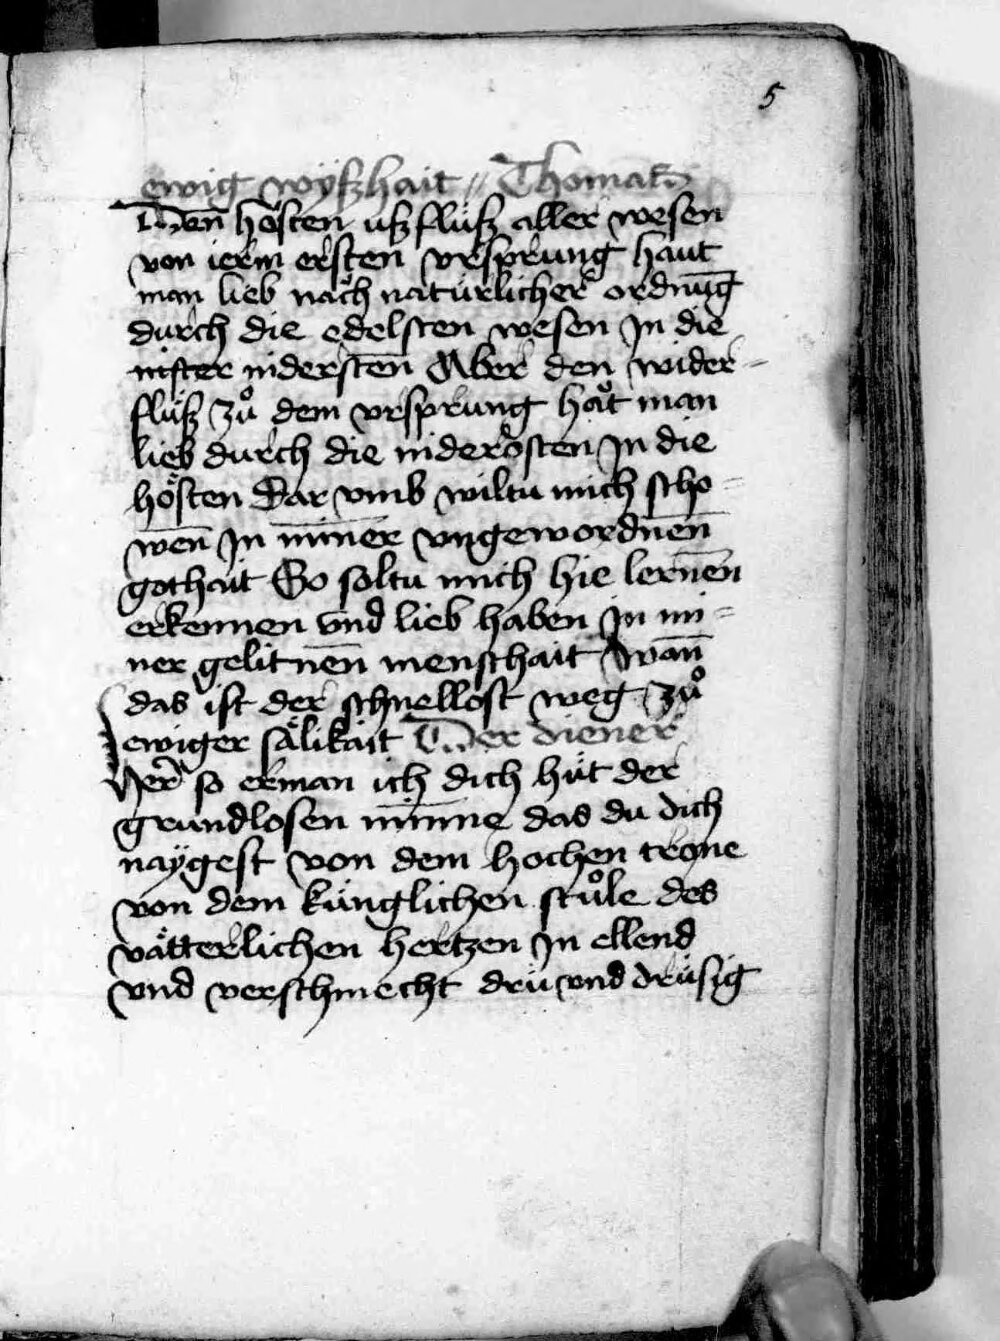 5
ewig wÿszhait
Den hosten uszflüsz aller wesen
von ierm ersten vrsprung haut
man lieb nach natürlicher ordnūg
durch die edelsten wesen In die
nister nidersten̄ Aber den wider=
flüsz zuͦ dem vrsprung haͮt man
lieb durch die niderosten In die
hösten Dar vmb wiltu mich scho=
wen̄ In min̄er vngewordnen̄
gothait So soltu mich hie lernen̄
erkennen vnd lieb haben In mi=
ner gelitnen̄ menschait wan̄
das ist der schnellost weg zuͦ
ewiger sälikait Der diener
Her so erman ich dich hüt der
grundlosen min̄ne das du dich
naÿgest von dem hochen trone
von dem künglichen stuͦle des
vätterlichen hertzen In ellend
vnd verschmecht drü vnd drüsig